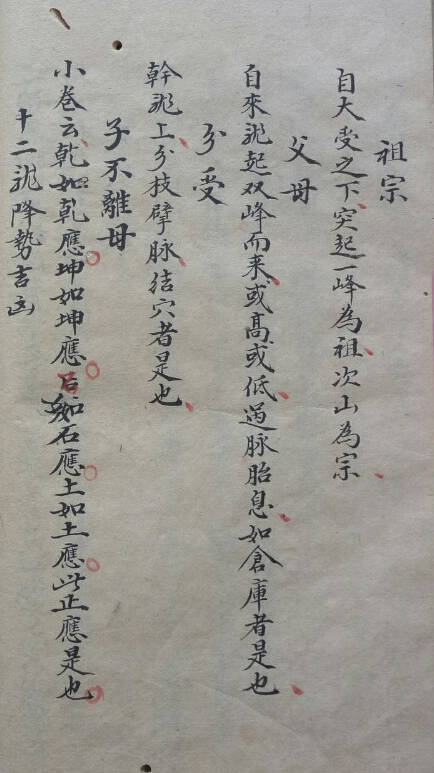 祖宗
自大受之下突起一峰為祖次山為宗
父母
自來龍起双峰而来或髙或低過脉胎息如倉庫者是也
分受
幹龍上分枝擘脉结穴者是也
子不離母
小卷云乾如乾應坤如坤應石如石應土如土應此正應是也
十二龍降勢吉凶